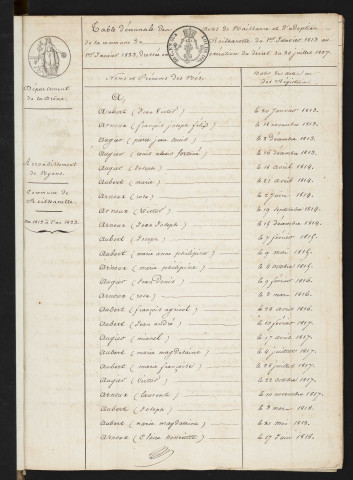 Table décennale des Actes de Naissance et d'Adoption
de la commune de Richerenches du 1er Janvier 1813 au
1er Janvier 1823, dressée en exécution du décret du 20 juillet 1807.
Département
de la Drôme.
Arrondissement
de Nyons.
Commune de
De 1813 à l'an 1823.
Noms et Prénoms des Nés.
Dates des actes ou
des Registres.
A
Aubert (Jean Victor) le 20 Janvier 1813.
Arnoux (françois joseph félix) le 18 novembre 1813.
Augier (pierre jean louis) le 2 décembre 1813.
Augier (louis alexis ) le 16 décembre 1813.
Augier (Joseph) le 16 avril 1814.
Aubert (marie) le 21 avril 1814.
Arnoux (rose) le 2 juin 1814.
Arnoux (Victor) le 19 septembre 1814.
Arnoux (Jean Joseph) le 15 décembre 1814.
Aubert (Joseph) le 7 février 1815.
Aubert (marie anne philippine) le 9 mai 1815.
Arnoux (marie philippine) le 4 octobre 1815.
Augier (Jean Denis) le 9 février 1816.
Arnoux (rose) le 2 mai 1816.
Aubert (françois agricol) le 20 août 1816.
Aubert (Jean andré) le 10 février 1817.
Augier (marcel) le 17 avril 1817.
Aubert (marie magdelaine) le 4 juillet 1817.
Aubert (marie françoise) le 26 juillet 1817.
Augier (Victor) le 22 octobre 1817.
Arnoux (laurent) le 10 novembre 1817.
Aubert (Joseph) le 3 mars 1818.
Aubert (marie magdeleine) le 21 mai 1818.
Arnoux (Claire henriette) le 17 juin 1818.